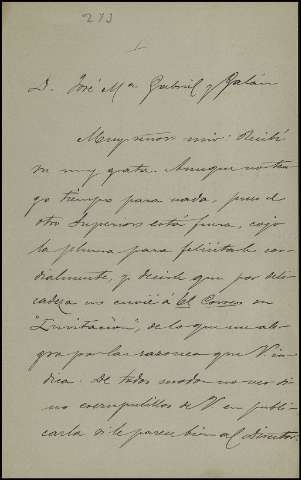 273
1
D. José Mª Gabriel y Galán
Muy señor mio: Recibí
su muy grata. Aunque no ten-
go tiempo para nada, pues el
otro Superior está fuera, cojo
la pluma para felicitarle cor-
dialmente, y decirle que por deli-
cadeza no envié á El Correo su
"Invitación", de lo que me ale-
gro por las razones que V in-
dica. De todos modos no veo si-
no escrupulillos de V en publi-
carla si le parece bien al Director.